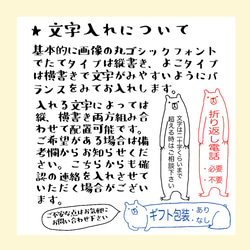 ★文字入れについて
基本的に画像の丸ゴシックフォント
でたてタイプは縦書き、よこタイプ
は横書きで文字がみやすいようにバ
ランスをみてお入れします。
入れる文字によっては
縦、横書き両方組み合
わせて配置可能です。
ご希望がある場合は備
考欄からお知らせくだ
さい。こちらからも確
認の連絡を入れさせて
いただく場合がござい
ます。
ご不安な点はお気軽に
お問い合わせ下さい
文字は二十字くらいまで
超える時はご相談下さい
折り返し電話
必要・不要
ギフト包装:あり・なし